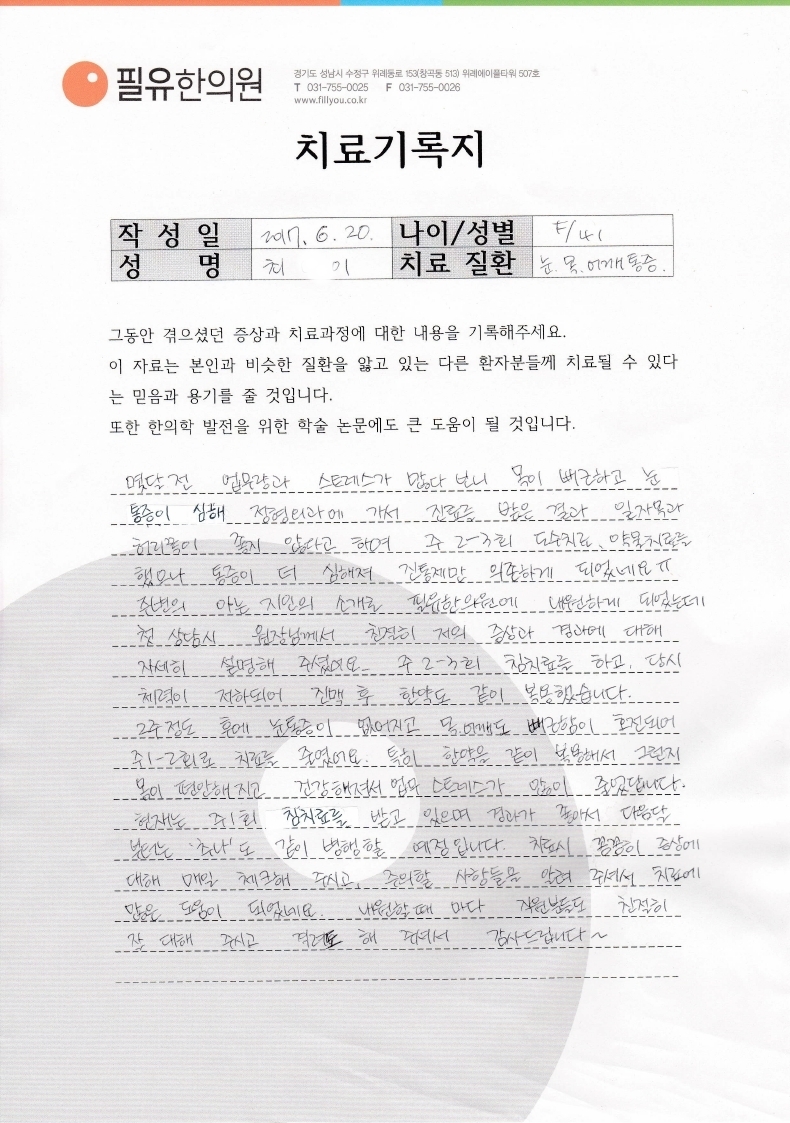 필유한의원
경기도 성남시 수정구 위례동로 153(창곡동 513) 위례에이플타워 507호
T 031-755-0025 F 031-755-0026
www.fillyou.co.kr
치료기록지
작 성 일 2017. 6. 20. 나이/성별 F/41
성 명 최 이 치료 질환 눈.목.어깨통증.
그동안 겪으셨던 증상과 치료과정에 대한 내용을 기록해주세요.
이 자료는 본인과 비슷한 질환을 앓고 있는 다른 환자분들께 치료될 수 있다
는 믿음과 용기를 줄 것입니다.
또한 한의학 발전을 위한 학술 논문에도 큰 도움이 될 것입니다.
몇달전 업무량과 스트레스가 많다 보니 목이 뻐근하고 눈
통증이 심해 정형외과에 가서 진료를 받은 결과 일자목과
허리쪽이 좋지 않다고 하며 주 2-3회 도수치료, 약물치료를
했으나 통증이 더 심해져 진통제만 의존하게 되었네요ㅠ
주변의 아는 지인의 소개로 필유한의원에 내원하게 되었는데
첫 상담시 원장님께서 친절히 저의 증상과 경과에 대해
자세히 설명해 주셨어요. 주 2-3회 침치료를 하고, 당시
체력이 저하되어 진맥 후 한약도 같이 복용했습니다.
2주정도 후에 눈통증이 없어지고 목.어깨도 뻐근함이 호전되어
주1-2회로 치료를 줄였어요. 특히 한약을 같이 복용해서 그런지
몸이 편안해지고 건강해져서 업무 스트레스가 많이 줄었답니다.
현재는 주1회 침치료를 받고 있으며 경과가 좋아서 다음달
부터는 '추나'도 같이 병행할 예정입니다. 치료시 꼼꼼히 증상에
대해 매일 체크해 주시고, 주의할 사항들을 알려 주셔서 치료에
많은 도움이 되었네요. 내원할때 마다 직원분들도 친절히
잘 대해 주시고 격려도 해 주셔서 감사드립니다~